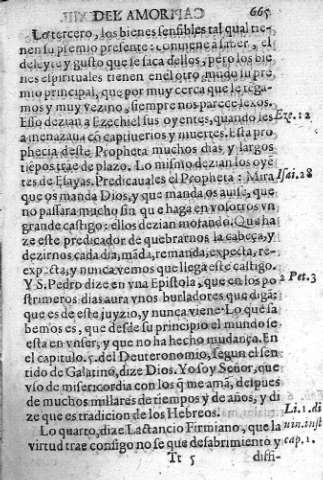 DEL AMOR CAP. XIII. 665
Lo tercero, los bienes sensibles tal qual tie-
nen su premio presente: conuiene a saber, el
deleyte y gusto que se saca dellos, pero los bie
nes espirituales tienen en el otro mūdo su pre
mio principal, que por muy cerca que le tēga-
mos y muy vezino, siempre nos parece lexos.
Esso dezian a Ezechiel sus oyentes, quando les Eze. 12
amenazaua cō captiuerios y muertes. Esta pro
phecia deste Propheta muchos dias y largos
tiēpos trae de plazo. Lo mismo dezian los oyē
tes de Esayas. Predicauales el Propheta: Mira Isai. 28
que os manda Dios, y que manda os auise, que
no passara mucho sin que haga en vosotros vn
grande castigo: ellos dezian mofando. Que ha
ze este predicador de quebrarnos la cabeça, y
dezirnos cada dia, māda, remanda, expecta, re-
expecta, y nunca vemos que llega este castigo.
Y S. Pedro dize en vna Epistola, que en los po 2 Pet. 3
strimeros dias aura vnos burladores que digā:
que es de este juyzio, y nunca viene. Lo que sa
bemos es, que desde su principio el mundo se
esta en vn ser, y que no ha hecho mudança. En
el capitulo. 5. del Deuteronomio, segun el sen
tido de Galatino, dize Dios. Yo soy Señor, que
vso de misericordia con los q̄ me amā, despues
de muchos millares de tiempos y de años, y di
ze que es tradicion de los Hebreos. Li. 1. di
Lo quarto, dize Lactancio Firmiano, que la uin. inst
virtud trae consigo no se que desabrimiento y cap. 1.
Tt 5 diffi-